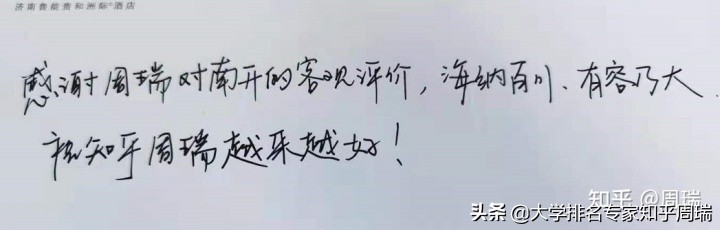 济南鲁能贵和洲际®酒店
感谢周瑞对南开的客观评价，海纳百川、有容乃大
祝知乎周瑞越来越好！
知乎 @周瑞
头条 @大学排名专家知乎周瑞